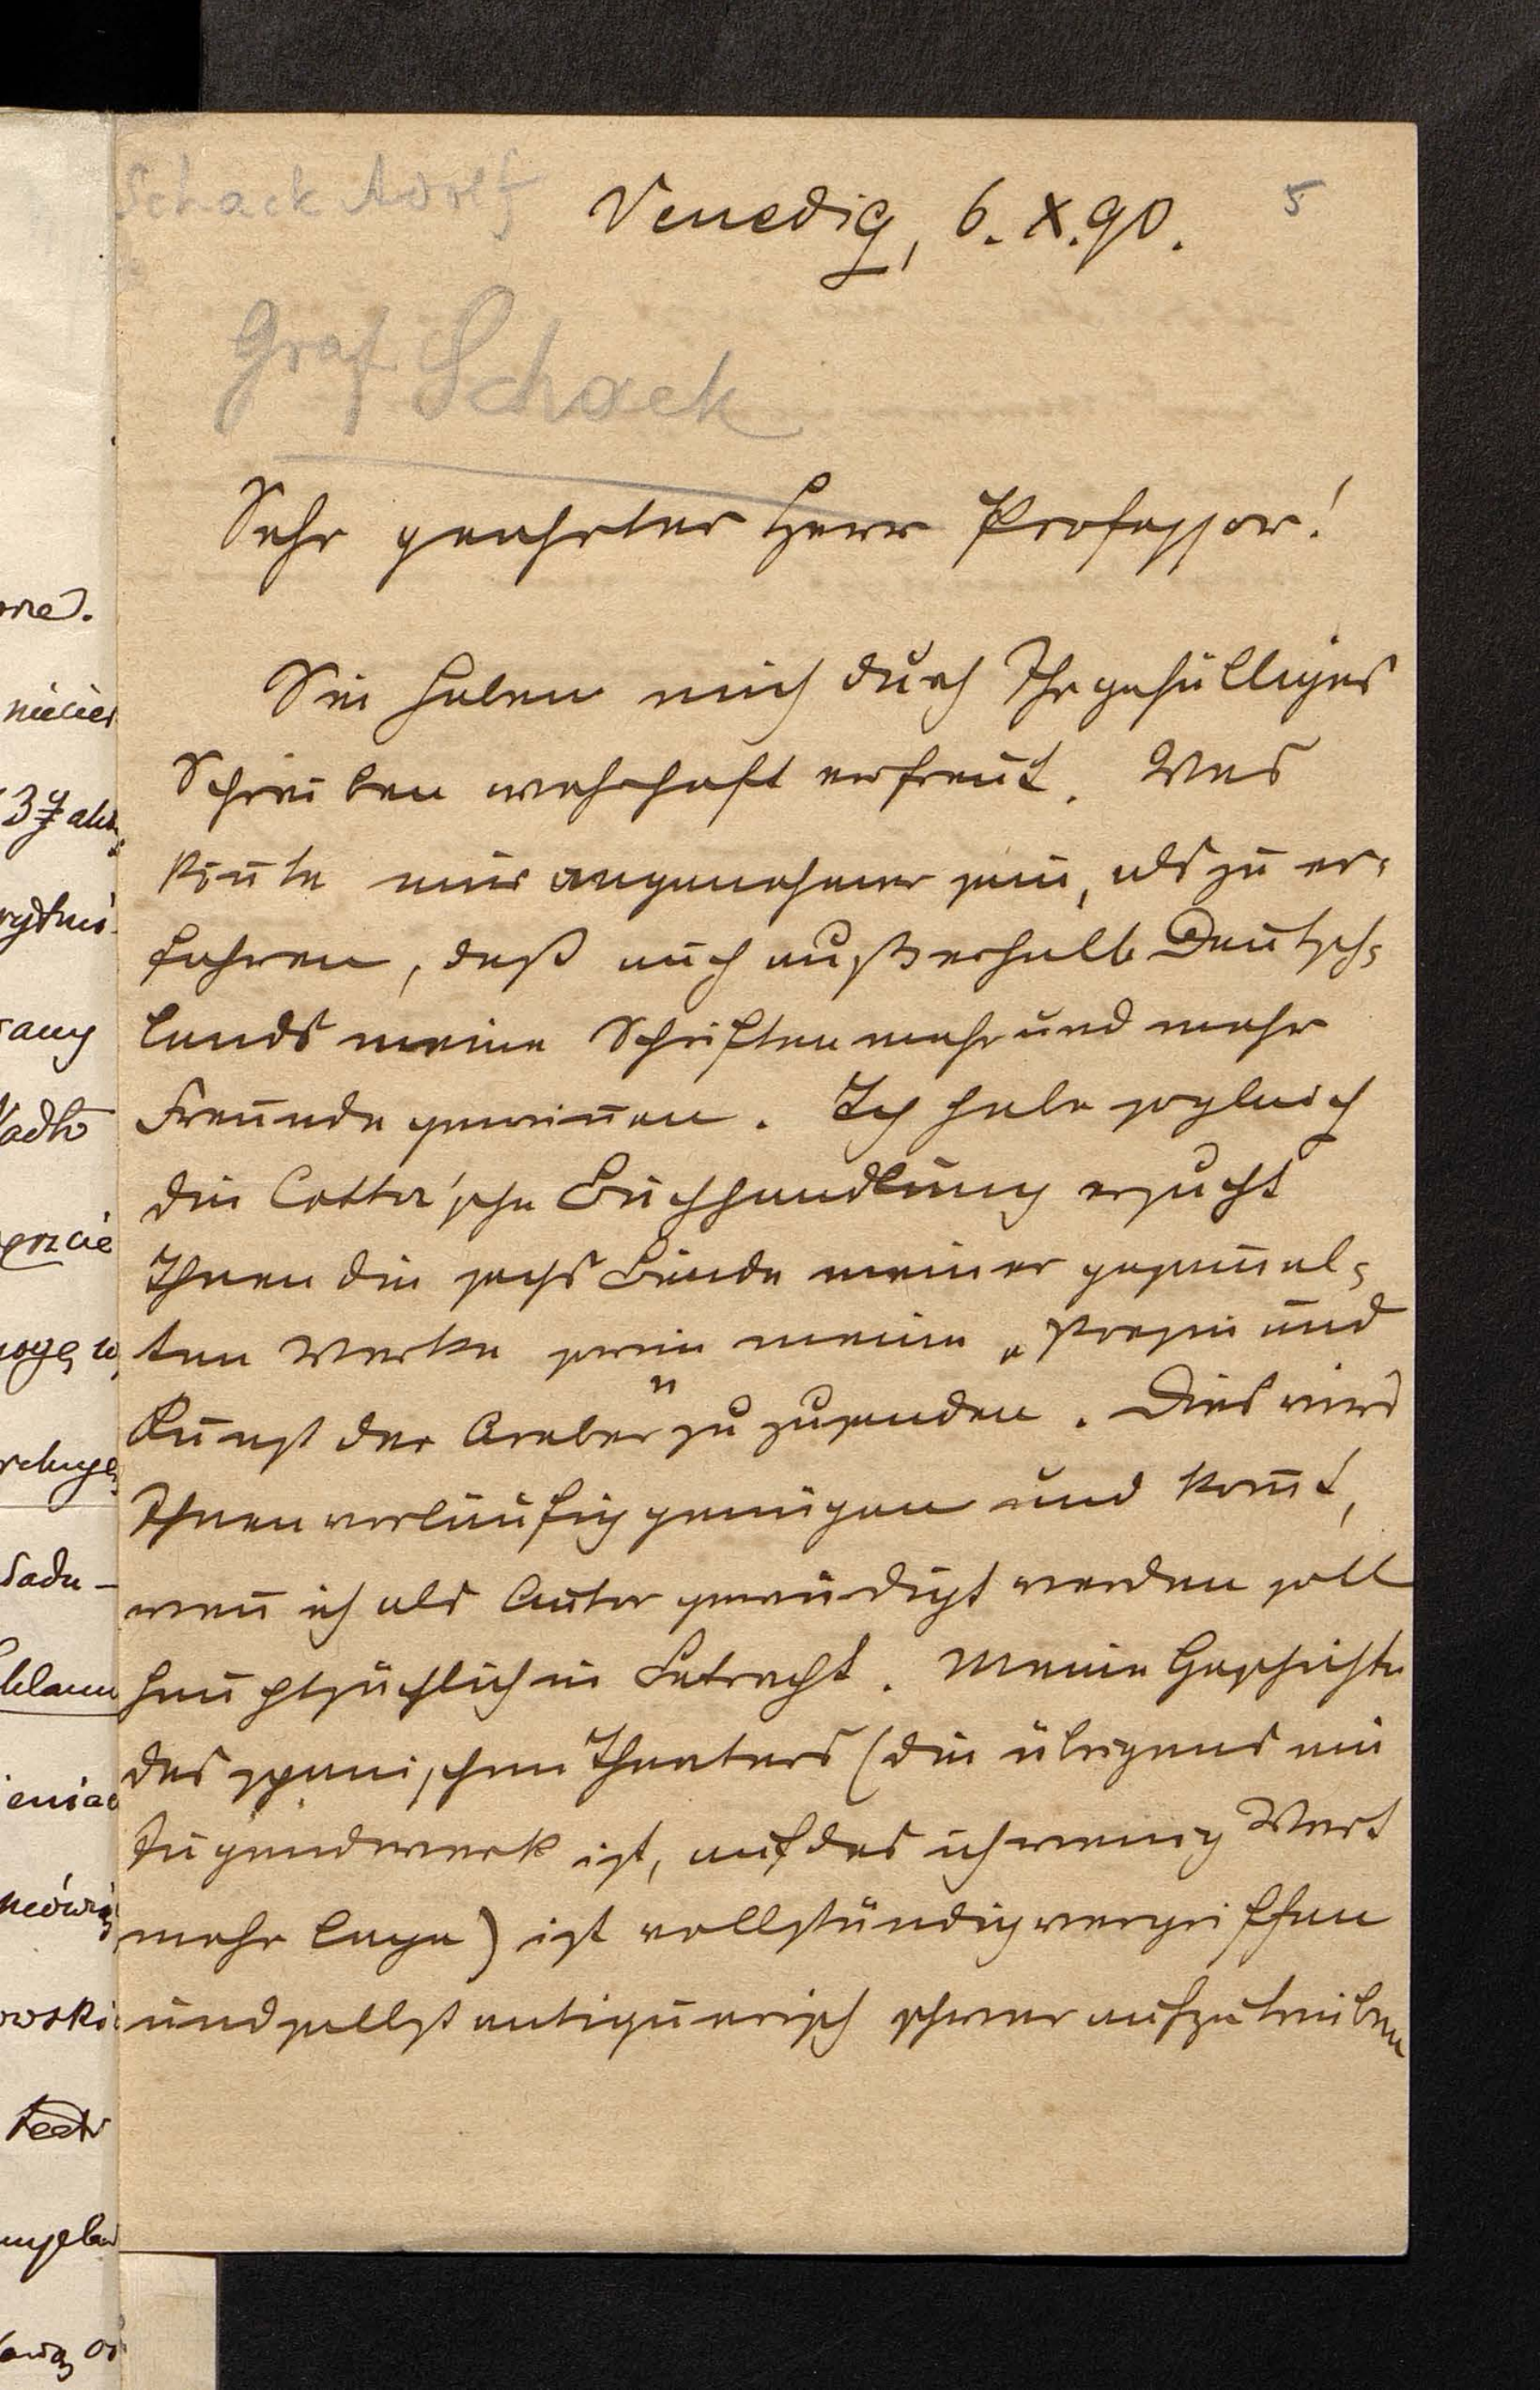 Schack Adolf
Venedig, 6. X. 90.
5
Graf Schack
Sehr geehrter Herr Professor!
Sie haben mich durch Ihr gefälliges
Schreiben wahrhaft erfreut. Was
kön̄te mir angenehmer sein, als zu er-
fahren, daß auch außerhalb Deutsch-
lands meine Schriften mehr und mehr
Freunde gewin̄en. Ich habe sogleich
die Cotta'sche Buchhandlung ersucht
Ihnen die sechs Bände meiner gesam̄el-
ten Werke sowie meine „Poesie und
Kunst der Araber" zu zusenden. Dies wird
Ihnen vorläufig genügen und kom̄t,
wen̄ ich als Autor gewürdigt werden soll
hauptsächlich in Betracht. Meine Geschichte
des spanischen Theaters (die übrigens ein
Jugendwerk ist, auf das ich wenig Wert
mehr lege) ist vollständig vergriffen
und selbst antiquarisch schwer aufzutreiben